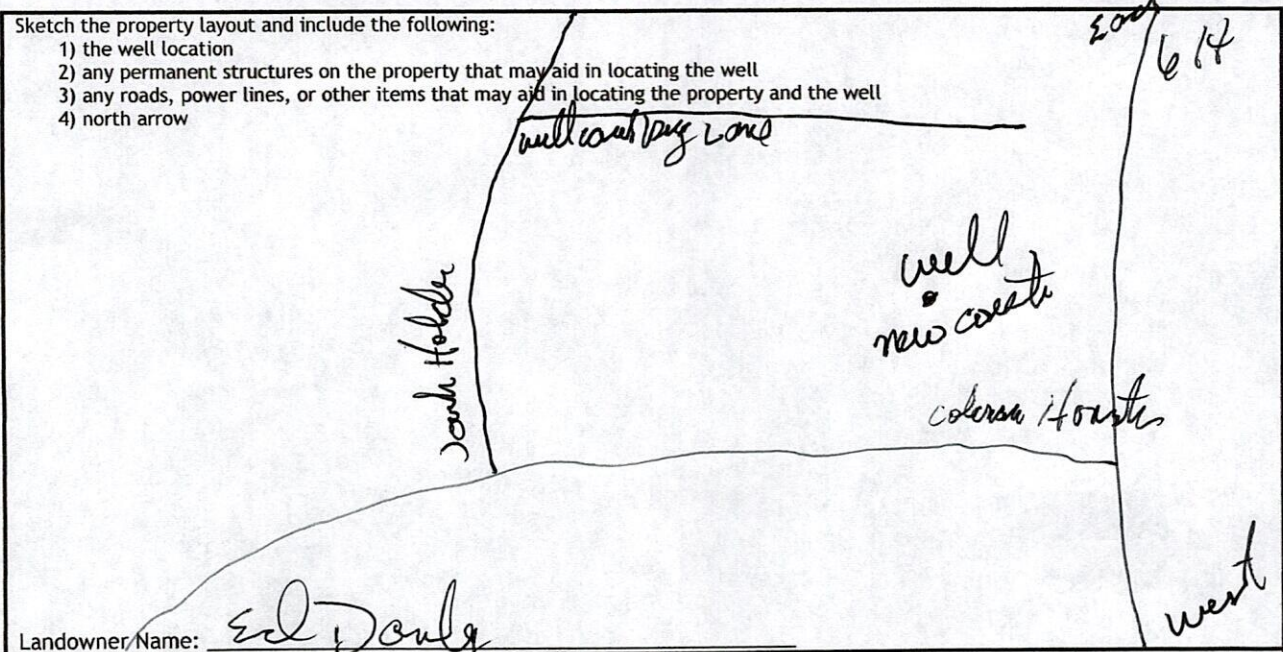 Sketch the property layout and include the following:
1) the well location
2) any permanent structures on the property that may aid in locating the well
3) any roads, power lines, or other items that may aid in locating the property and the well
4) north arrow
614
well
new
Holder
west
Landowner Name: Ed